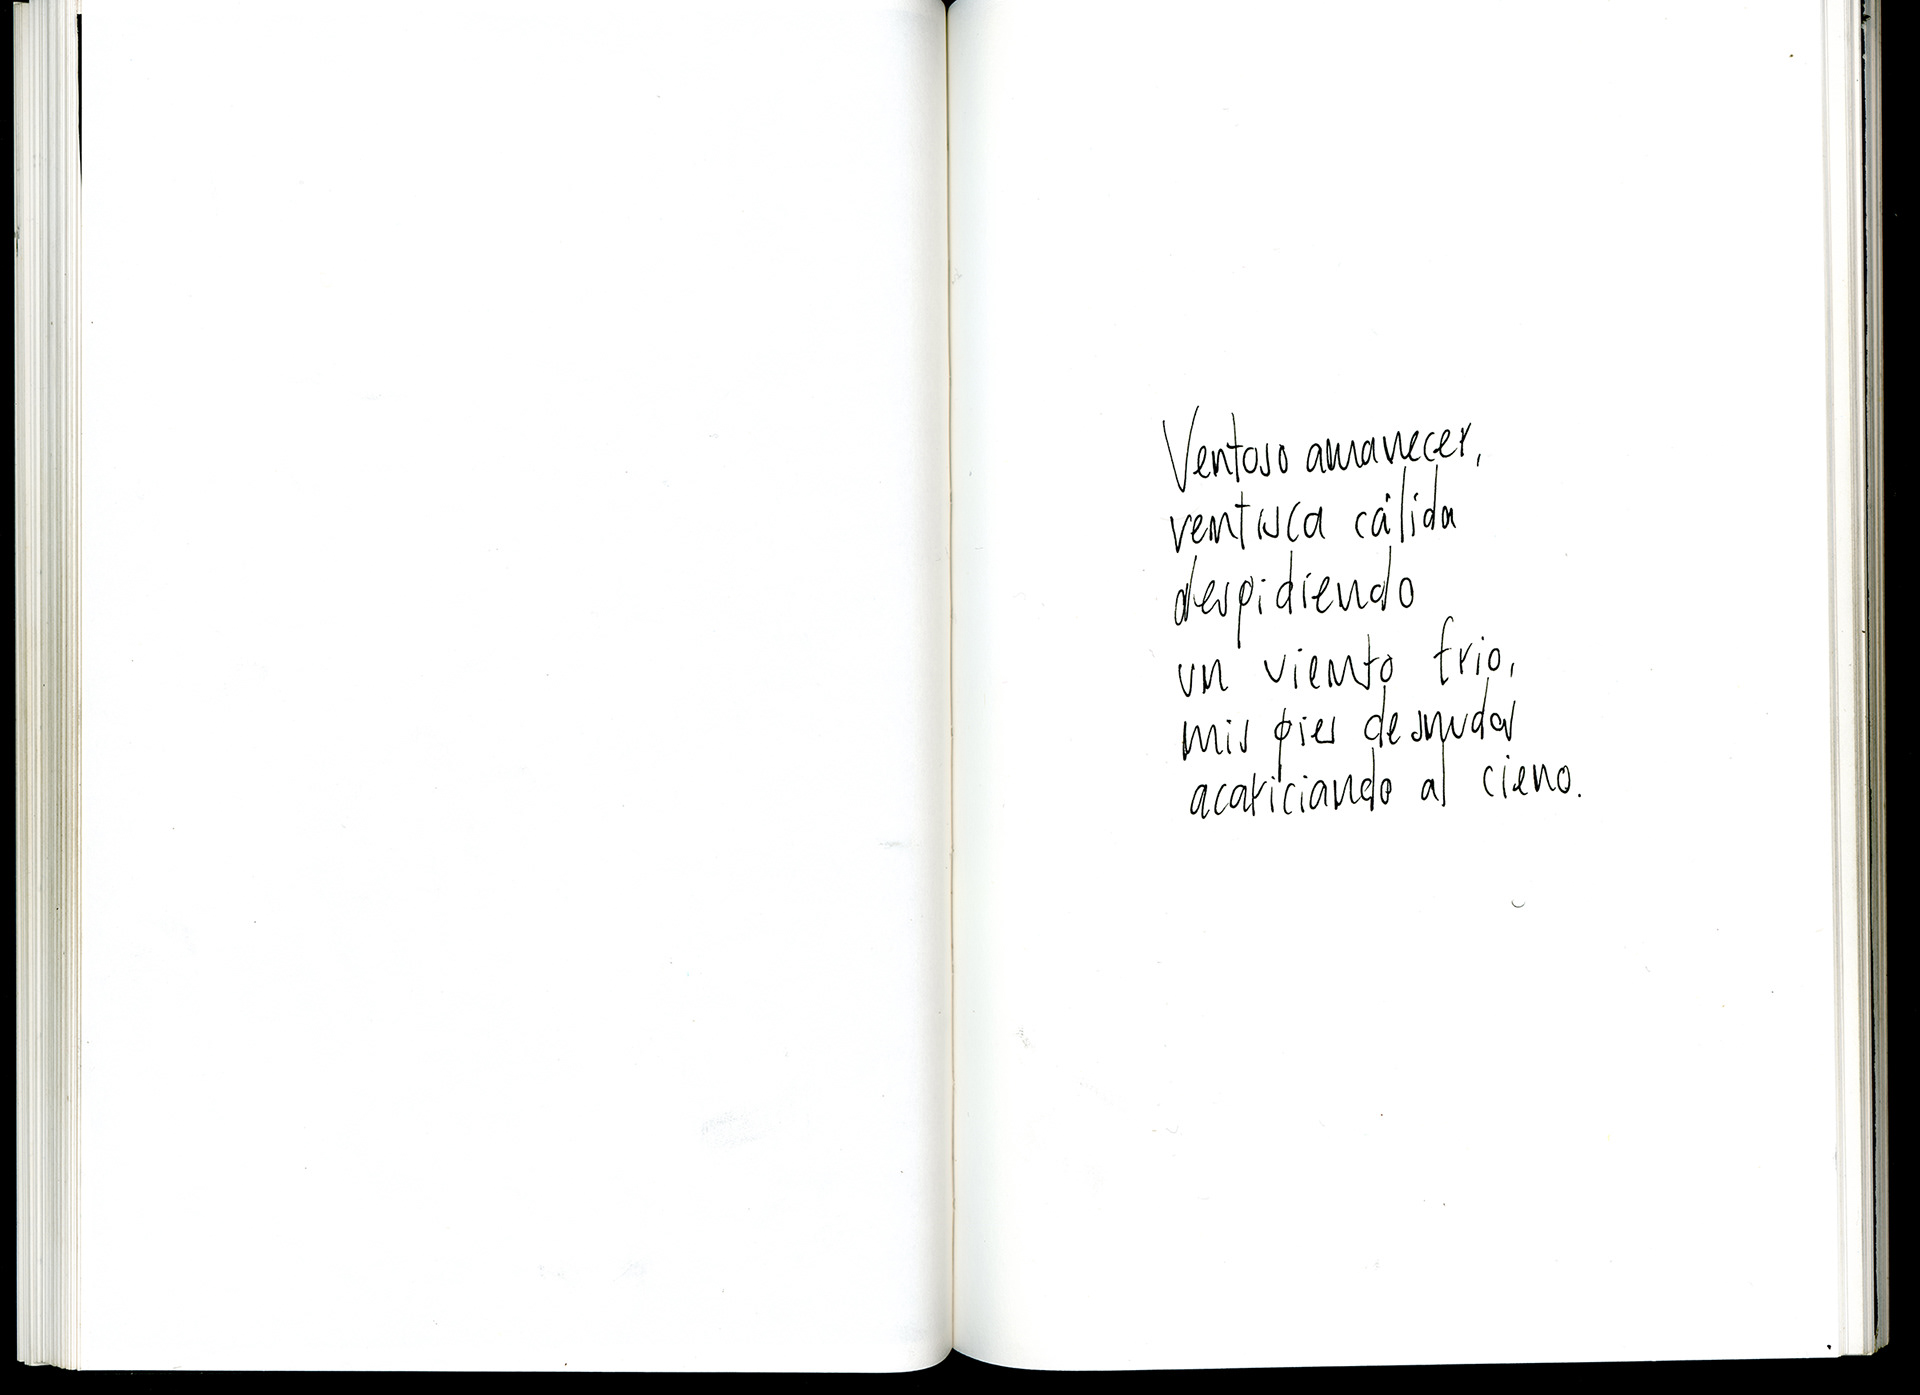 Ventoso amanecer,
ventisca cálida
despidiendo
un viento frio,
mis pies desnudos
acariciando al cieno.